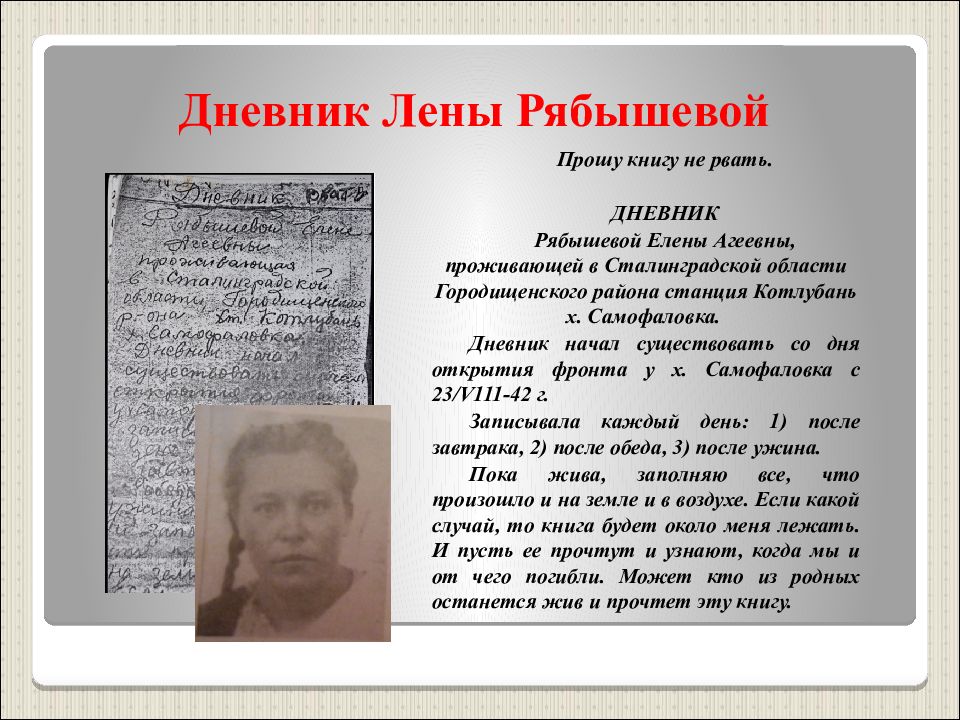 Дневник Лены Рябышевой
Прошу книгу не рвать.
ДНЕВНИК
Рябышевой Елены Агеевны,
проживающей в Сталинградской области
Городищенского района станция Котлубань
х. Самофаловка.
Дневник начал существовать со дня
открытия фронта у х. Самофаловка с
23/V111-42 г.
Записывала каждый день: 1) после
завтрака, 2) после обеда, 3) после ужина.
Пока жива, заполняю все, что
произошло и на земле и в воздухе. Если какой
случай, то книга будет около меня лежать.
И пусть ее прочтут и узнают, когда мы и
от чего погибли. Может кто из родных
останется жив и прочтет эту книгу.
Дневник
Рябышевой Елене
Агеевны
проживающая
в Сталинградской
области Городищенского
р-она ст. Котлубань
х. Самофаловка.
Дневник начал